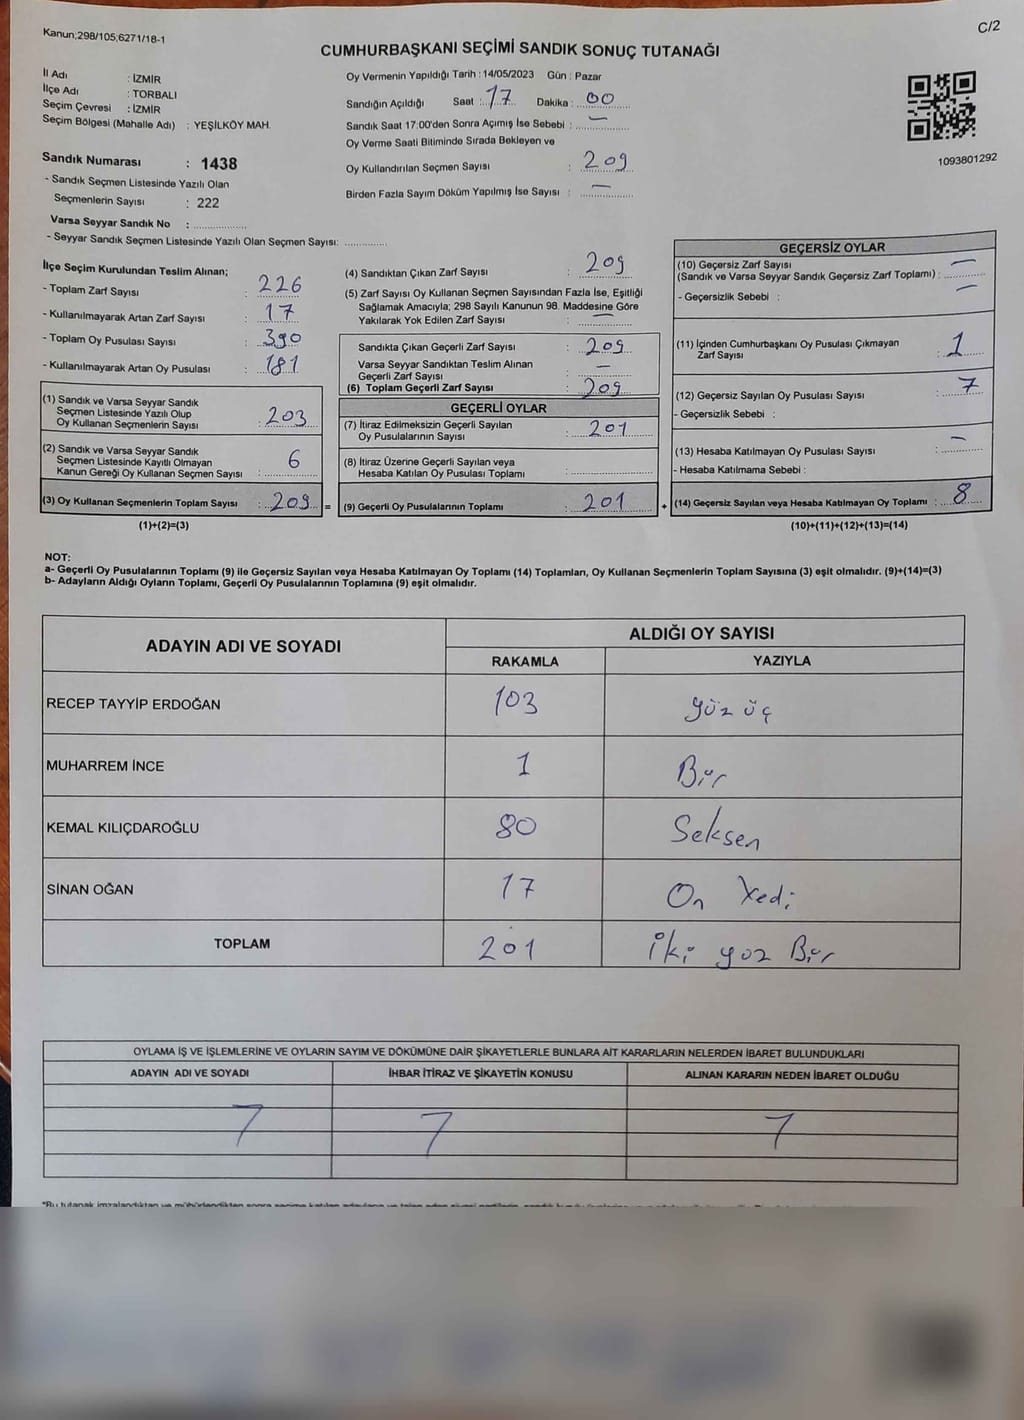 Kanun;298/105;6271/18-1
C/2
CUMHURBAŞKANI SEÇİMİ SANDIK SONUÇ TUTANAĞI
İl Adı : İZMİR
İlçe Adı : TORBALI
Seçim Çevresi : İZMİR
Seçim Bölgesi (Mahalle Adı) : YEŞİLKÖY MAH.
Sandık Numarası : 1438
- Sandık Seçmen Listesinde Yazılı Olan
Seçmenlerin Sayısı : 222
Varsa Seyyar Sandık No :
- Seyyar Sandık Seçmen Listesinde Yazılı Olan Seçmen Sayısı:
Oy Vermenin Yapıldığı Tarih : 14/05/2023 Gün : Pazar
Sandığın Açıldığı Saat : 17 Dakika : 00
Sandık Saat 17:00'den Sonra Açımış İse Sebebi : —
Oy Verme Saati Bitiminde Sırada Bekleyen ve
Oy Kullandırılan Seçmen Sayısı : 209
Birden Fazla Sayım Döküm Yapılmış İse Sayısı : —
1093801292
İlçe Seçim Kurulundan Teslim Alınan;
- Toplam Zarf Sayısı : 226
- Kullanılmayarak Artan Zarf Sayısı : 17
- Toplam Oy Pusulası Sayısı : 390
- Kullanılmayarak Artan Oy Pusulası : 181
(1) Sandık ve Varsa Seyyar Sandık
Seçmen Listesinde Yazılı Olup
Oy Kullanan Seçmenlerin Sayısı : 203
(2) Sandık ve Varsa Seyyar Sandık
Seçmen Listesinde Kayıtlı Olmayan
Kanun Gereği Oy Kullanan Seçmen Sayısı : 6
(3) Oy Kullanan Seçmenlerin Toplam Sayısı : 209 =
(1)+(2)=(3)
(4) Sandıktan Çıkan Zarf Sayısı : 209
(5) Zarf Sayısı Oy Kullanan Seçmen Sayısından Fazla İse, Eşitliği
Sağlamak Amacıyla; 298 Sayılı Kanunun 98. Maddesine Göre
Yakılarak Yok Edilen Zarf Sayısı : —
Sandıkta Çıkan Geçerli Zarf Sayısı : 209
Varsa Seyyar Sandıktan Teslim Alınan
Geçerli Zarf Sayısı : —
(6) Toplam Geçerli Zarf Sayısı : 209
GEÇERLİ OYLAR
(7) İtiraz Edilmeksizin Geçerli Sayılan
Oy Pusulalarının Sayısı : 201
(8) İtiraz Üzerine Geçerli Sayılan veya
Hesaba Katılan Oy Pusulası Toplamı :
(9) Geçerli Oy Pusulalarının Toplamı : 201 +
GEÇERSİZ OYLAR
(10) Geçersiz Zarf Sayısı —
(Sandık ve Varsa Seyyar Sandık Geçersiz Zarf Toplamı) :
- Geçersizlik Sebebi : —
(11) İçinden Cumhurbaşkanı Oy Pusulası Çıkmayan
Zarf Sayısı : 1
(12) Geçersiz Sayılan Oy Pusulası Sayısı : 7
- Geçersizlik Sebebi :
(13) Hesaba Katılmayan Oy Pusulası Sayısı : —
- Hesaba Katılmama Sebebi :
(14) Geçersiz Sayılan veya Hesaba Katılmayan Oy Toplamı : 8
(10)+(11)+(12)+(13)=(14)
NOT:
a- Geçerli Oy Pusulalarının Toplamı (9) ile Geçersiz Sayılan veya Hesaba Katılmayan Oy Toplamı (14) Toplamları, Oy Kullanan Seçmenlerin Toplam Sayısına (3) eşit olmalıdır. (9)+(14)=(3)
b- Adayların Aldığı Oyların Toplamı, Geçerli Oy Pusulalarının Toplamına (9) eşit olmalıdır.
ADAYIN ADI VE SOYADI
ALDIĞI OY SAYISI
RAKAMLA YAZIYLA
RECEP TAYYİP ERDOĞAN 103 yüz üç
MUHARREM İNCE 1 Bir
KEMAL KILIÇDAROĞLU 80 Seksen
SİNAN OĞAN 17 On Yedi
TOPLAM 201 iki yüz Bir
OYLAMA İŞ VE İŞLEMLERİNE VE OYLARIN SAYIM VE DÖKÜMÜNE DAİR ŞİKAYETLERLE BUNLARA AİT KARARLARIN NELERDEN İBARET BULUNDUKLARI
ADAYIN ADI VE SOYADI İHBAR İTİRAZ VE ŞİKAYETİN KONUSU ALINAN KARARIN NEDEN İBARET OLDUĞU